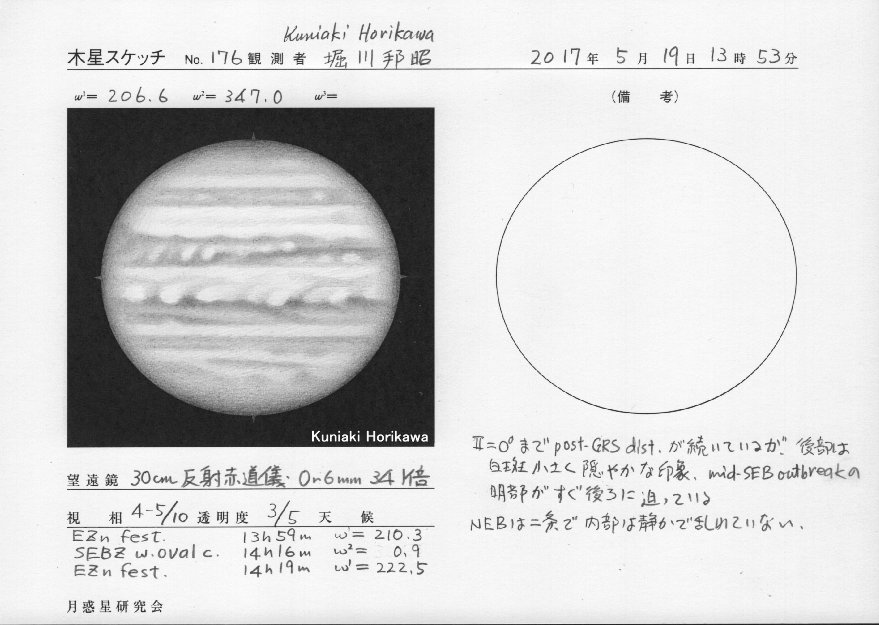 Kuniaki Horikawa
木星スケッチ No. 176 観測者 堀川邦昭 2017年 5月 19日 13時 53分
ω¹= 206.6 ω²= 347.0 ω³=
(備 考)
Kuniaki Horikawa
II=0°まで post-GRS dist. が続いているが、後部は
白斑小さく穏やかな印象、mid-SEB outbreakの
明部がすぐ後ろに迫っている
NEBは二条で内部は静かで乱れていない、
望遠鏡 30cm 反射赤道儀・Or6mm 341倍
視 相 4-5/10 透明度 3/5 天 候
EZn fest. 13h59m ω¹= 210.3
SEBZ w.oval c. 14h16m ω²= 0.9
EZn fest. 14h19m ω¹= 222.5
月惑星研究会